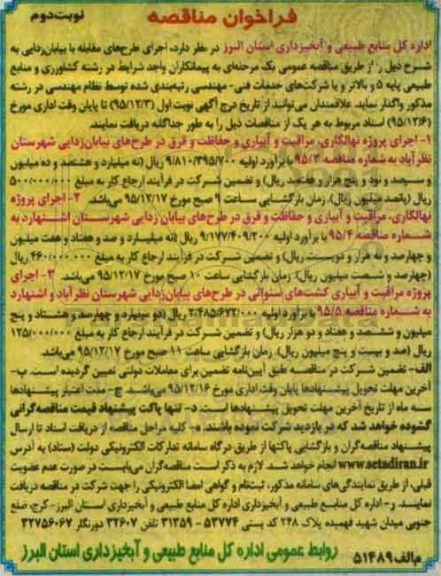 فراخوان مناقصه
نوبت دوم
اداره کل منابع طبیعی و آبخیزداری استان البرز در نظر دارد، اجرای طرح‌های مقابله با بیابان‌زدایی به
شرح ذیل را از طریق مناقصه عمومی یک مرحله‌ای به پیمانکاران واجد شرایط در رشته کشاورزی و منابع
طبیعی پایه ۵ و بالاتر و یا شرکت‌های خدمات فنی- مهندسی رتبه‌بندی شده توسط نظام مهندسی در رشته
مذکور واگذار نماید. علاقمندان می‌توانند از تاریخ درج آگهی نوبت اول (۹۵/۱۲/۳) تا پایان وقت اداری مورخ
(۹۵/۱۲/۶) اسناد مربوط به هر یک از مناقصات ذیل را به طور جداگانه دریافت نمایند.
۱- اجرای پروژه نهالکاری، مراقبت و آبیاری و حفاظت و قرق در طرح‌های بیابان‌زدایی شهرستان
نظرآباد به شماره مناقصه ۹۵/۳ با برآورد اولیه ۹/۸۱۰/۳۹۵/۷۰۰ ریال (نه میلیارد و هشتصد و ده میلیون
و سیصد و نود و پنج هزار و هفتصد ریال) و تضمین شرکت در فرآیند ارجاع کار به مبلغ ۵۰۰/۰۰۰/۰۰۰
ریال (پانصد میلیون ریال). زمان بازگشایی ساعت ۹ صبح مورخ ۹۵/۱۲/۱۷ می‌باشد. ۲- اجرای پروژه
نهالکاری، مراقبت و آبیاری و حفاظت و قرق در طرح‌های بیابان زدایی شهرستان اشتهارد به
شماره مناقصه ۹۵/۴ با برآورد اولیه ۹/۱۷۷/۴۰۹/۲۰۰ ریال (نه میلیارد و صد و هفتاد و هفت میلیون
و چهارصد و نه هزار و دویست ریال) و تضمین شرکت در فرآیند ارجاع کار به مبلغ ۴۶۰/۰۰۰/۰۰۰ ریال
(چهارصد و شصت میلیون ریال). زمان بازگشایی ساعت ۱۰ صبح مورخ ۹۵/۱۲/۱۷ می‌باشد. ۳- اجرای
پروژه مراقبت و آبیاری کشت‌های سنواتی در طرح‌های بیابان‌زدایی شهرستان نظرآباد و اشتهارد
به شماره مناقصه ۹۵/۵ با برآورد اولیه ۲/۴۸۵/۶۷۲/۰۰۰ ریال (دو میلیارد و چهارصد و هشتاد و پنج
میلیون و ششصد و هفتاد و دو هزار ریال) و تضمین شرکت در فرآیند ارجاع کار به مبلغ ۱۲۵/۰۰۰/۰۰۰
ریال (صد و بیست و پنج میلیون ریال). زمان بازگشایی ساعت ۱۱ صبح مورخ ۹۵/۱۲/۱۷ می‌باشد.
الف- تضمین شرکت در مناقصه طبق آیین‌نامه تضمین برای معاملات دولتی تعیین گردیده است. ب-
آخرین مهلت تحویل پیشنهادها پایان وقت اداری مورخ ۹۵/۱۲/۱۶ می‌باشد. ج- مدت اعتبار پیشنهادها
سه ماه از تاریخ آخرین مهلت تحویل پیشنهادها است. د- تنها پاکت پیشنهاد قیمت مناقصه‌گرانی
گشوده خواهد شد که در بازدید شرکت نموده باشند. ه- کلیه مراحل مناقصه از دریافت اسناد تا ارسال
پیشنهاد مناقصه‌گران و بازگشایی پاکتها از طریق درگاه سامانه تدارکات الکترونیکی دولت (ستاد) به آدرس
www.setadiran.ir انجام خواهد شد. لازم به ذکر است مناقصه‌گران می‌بایست در صورت عدم عضویت
قبلی، از طریق نمایندگی‌های سامانه مذکور، ثبت‌نام و گواهی امضا الکترونیکی را جهت شرکت در مناقصه دریافت
نمایند. و- اداره کل منابع طبیعی و آبخیزداری اداره کل منابع طبیعی و آبخیزداری استان البرز- کرج، ضلع
جنوبی میدان شهید فهمیده پلاک ۲۴۸ کد پستی ۵۳۷۷۴ - ۳۱۳۵۹ تلفن ۳۲۶۰۷ دورنگار ۳۲۷۵۶۰۶۷
روابط عمومی اداره کل منابع طبیعی و آبخیزداری استان البرز
م/الف ۵۱۴۸۹